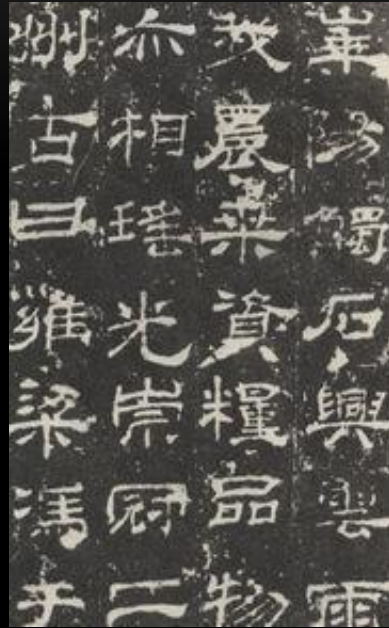 崋陽觸石興雲雨
我農桑資糧品物
亦相瑤光崇冠二
州古曰雍梁馮于